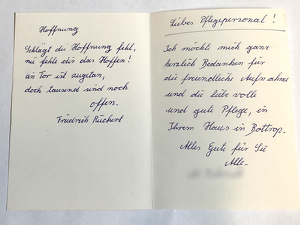 Hoffnung
Schlägt dir Hoffnung fehl,
nie fehle dir das Hoffen!
ein Tor ist zugetan,
doch tausend sind noch
offen.
Friedrich Rückert
Liebes Pflegepersonal!
Ich möchte mich ganz
herzlich Bedanken für
die freundliche Aufnahme
und die liebe volle
und gute Pflege, in
Ihrem Haus in Bottrop.
Alles Gute für Sie
Alle.